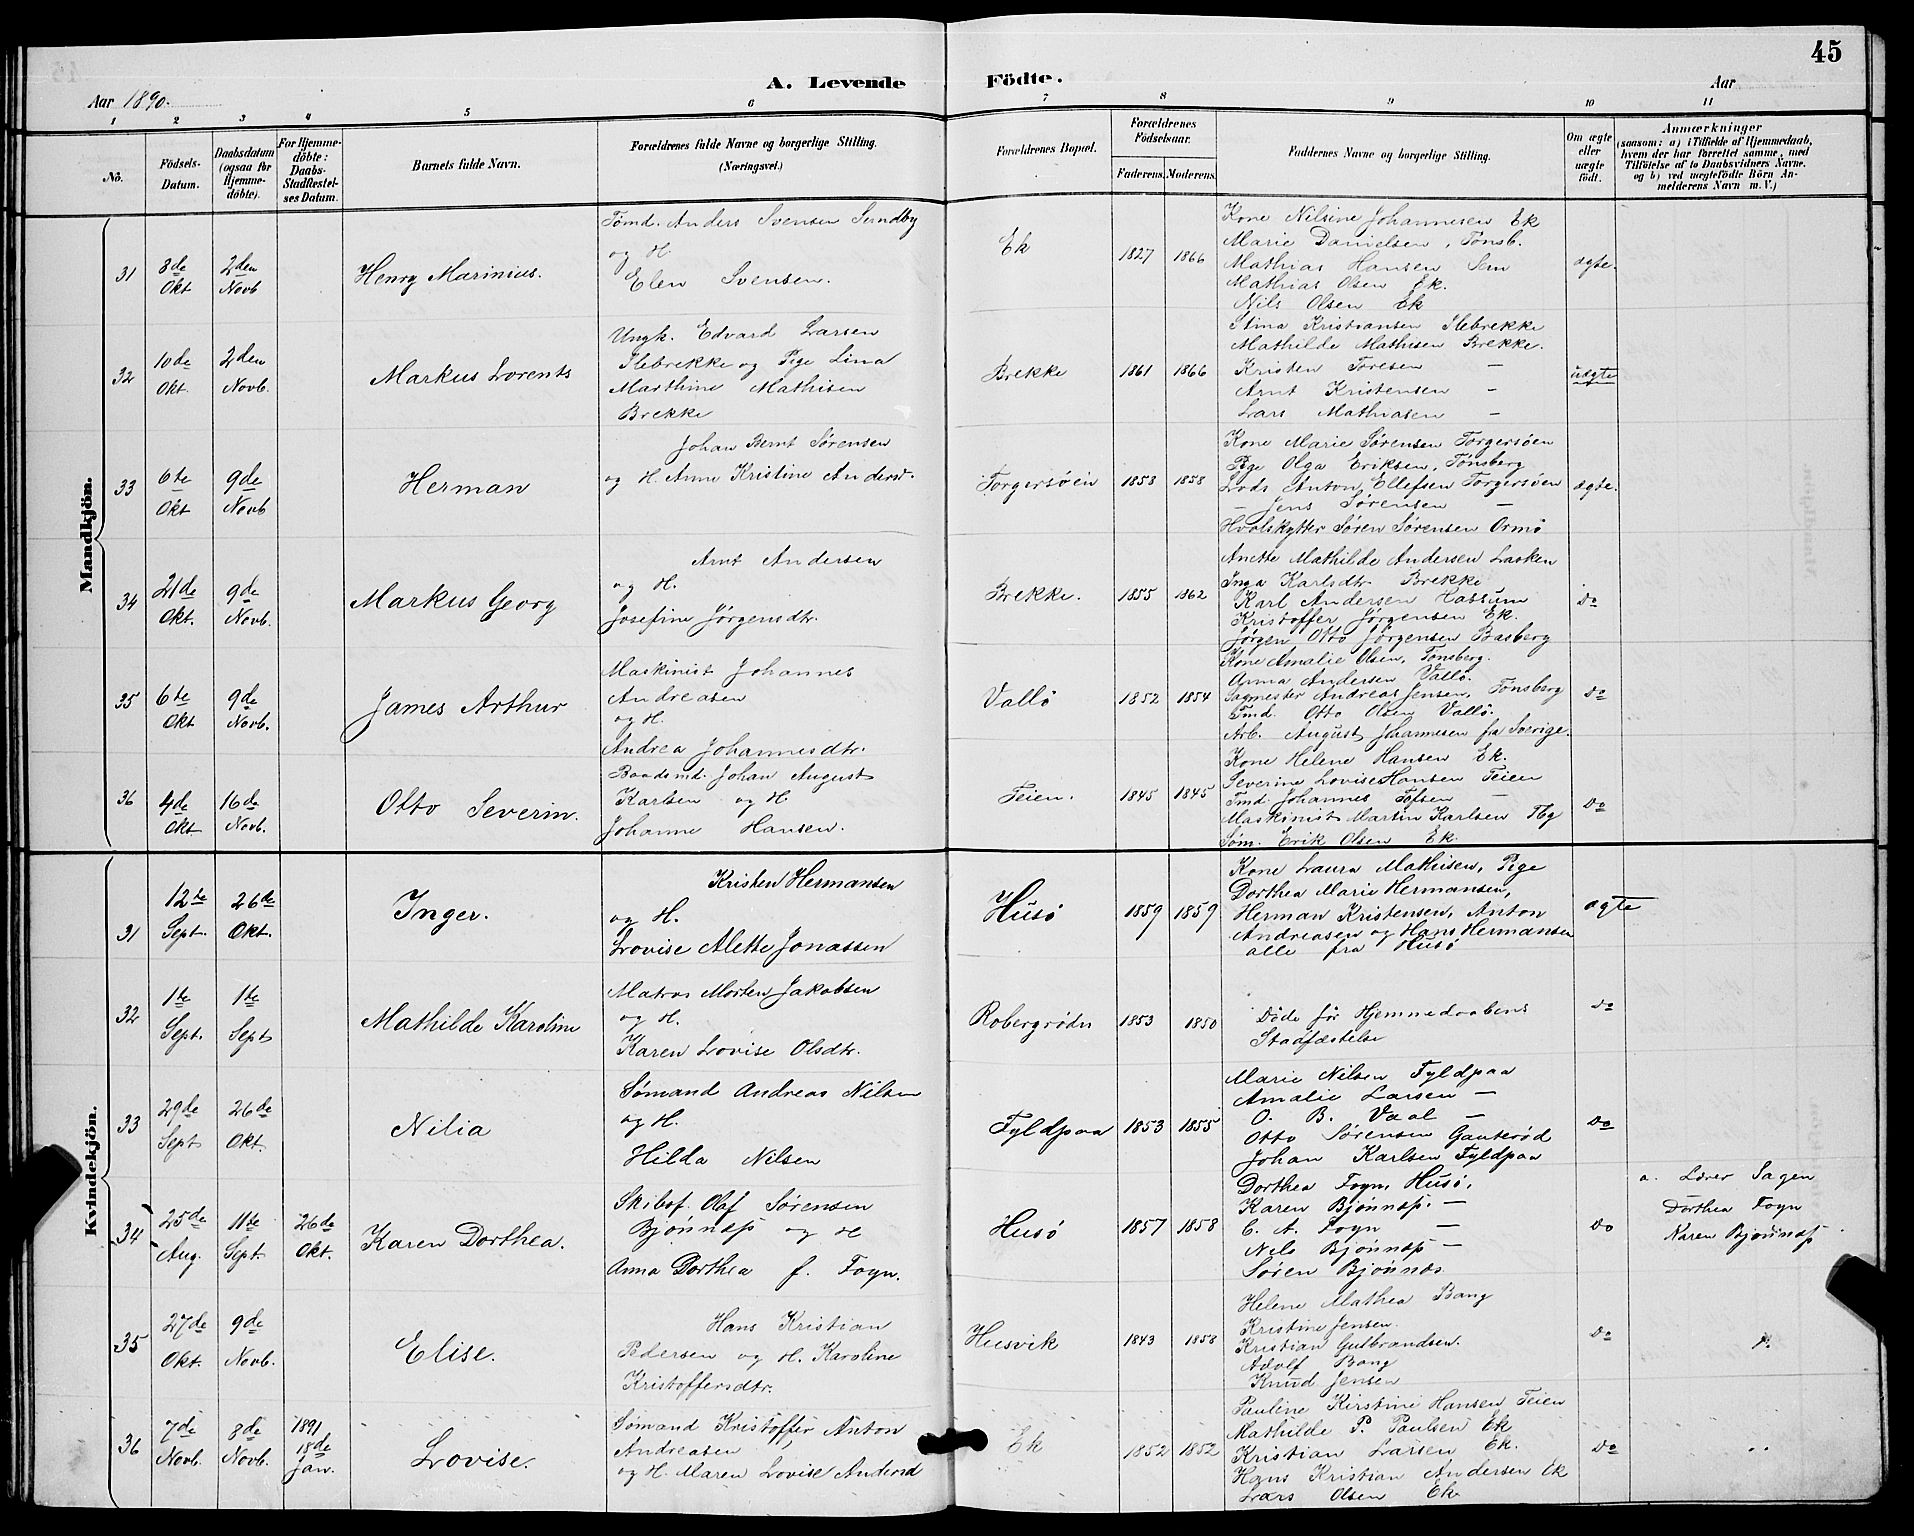 45
A. Levende Födte.
Aar 1890.
Aar
1 2 3 4 5 6 7 8 9 10 11
No.
Födsels-Datum.
Daabsdatum (ogsaa for Hjemme-döbte).
For Hjemme-döbte: Daabs-Stadfæstel-ses Datum.
Barnets fulde Navn.
Forældrenes fulde Navne og borgerlige Stilling. (Næringsvei.)
Forældrenes Bopæl.
Forældrenes Födselsaar.
Faderens. Moderens.
Faddernes Navne og borgerlige Stilling.
Om ægte eller uægte födt.
Anmærkninger
(saasom: a) i Tilfælde af Hjemmedaab, hvem der har forrettet samme, med Tilföielse af to Daabsvidners Navne, og b) ved uægtefödte Börn An-melderens Navn m. V.)
Mandkjön.
31
3de Okt
2den Novb
Henry Marinius.
Tømd. Anders Svensen Sundby
og H.
Elen Svensen.
Ek
1827 1866
Kone Nilsine Johannesen Ek
Marie Danielsen, Tønsb.
Mathias Hansen Sem
Mathias Olsen Ek.
Nils Olsen Ek
ægte.
32
10de Okt.
2den Novb.
Markus Lorents
Ungk. Edvard Larsen
Ilebrekke og Pige Lina
Marthine Mathisen
Brekke
Brekke
1861 1866
Stina Kristiansen Ilebrekke
Mathilde Mathisen Brekke.
Kristen Toresen —
Arnt Kristensen —
Lars Mathiasen —
uægte
33
6te Okt
9de Novb
Herman
Johan Bernt Sørensen
og H. Anne Kristine Andersd.
Torgersøen
1853 1858
Kone Marie Sørensen Torgersøen
Pige Olga Eriksen, Tønsberg
Lods Anton Ellefsen Torgersøen
— Jens Sørensen —
Hvalskytter Søren Sørensen Ormø
ægte.
34
21de Okt.
9de Novb.
Markus Georg
Arnt Andersen
og H.
Josefine Jørgensdtr.
Brekke.
1855 1862
Anette Mathilde Andersen Laoken
Inga Karlsdtr. Brekke
Karl Andersen Hassum
Kristoffer Jørgensen Ek.
Jørgen Otto Jørgensen Basberg
Do
35
6te Okt
9de Novb.
James Arthur
Maskinist Johannes
Andreasen
og H.
Andrea Johannesdtr.
Vallö
1852 1854
Kone Amalie Olsen, Tønsberg.
Anna Andersen Vallø.
Sagmester Andreas Jensen, Tønsberg
Tmd. Otto Olsen Vallö.
Arb. August Johannesen fra Sverige.
Do
36
4de Okt.
16de Novb.
Otto Severin.
Baadsmd. Johan August
Karlsen og H.
Johanne Hansen.
Teien.
1845 1845
Kone Helene Hansen Ek.
Severine Lovise Hansen Teien
Tmd. Johannes Tofsen —
Maskinist Martin Karlsen Tbg
Søm. Erik Olsen Ek.
Do
Kvindekjön.
31
12te Sept.
26de Okt.
Inger.
Kristen Hermansen
og H.
Lovise Alette Jonassen
Husö
1859 1859
Kone Laura Mathisen, Pige
Dorthea Marie Hermansen,
Herman Kristensen, Anton
Andreasen og Hans Hermansen
alle fra Husö
ægte
32
1te Sept.
1te Sept
Mathilde Karoline
Matros Morten Jakobsen
og H.
Karen Lovise Olsdtr.
Robergrødn
1853 1850
Døde før Hjemmedaabens
Stadfæstelse
Do
33
29de Sept
26de Okt.
Nilia
Sømand Andreas Nilsen
og H.
Hilda Nilsen
Fyldpaa
1853 1855
Marie Nilsen Fyldpaa
Amalie Larsen —
O. B. Vaal —
Otto Sørensen Gauterød
Johan Karlsen Fyldpaa
Do
34
25de Aug.
11te Sept.
26de Okt.
Karen Dorthea.
Skibsf. Olaf Sørensen
Bjønnæs og H
Anna Dorthea f. Foyn.
Husö
1857 1858
Dorthea Foyn, Husö.
Karen Bjønnæs. —
C. A. Foyn —
Nils Bjønnæs —
Søren Bjønnæs
Do
a. Lærer Sagen
Dorthea Foyn
Karen Bjønnæs
35
27de Okt.
9de Novb.
Elise.
Hans Kristian
Pedersen og H. Karoline
Kristoffersdtr.
Husvik
1843 1858
Helene Mathea Bang
Kristine Jensen.
Kristian Gulbrandsen.
Adolf Bang
Knud Jensen
Do
36
7de Novb.
8de Novb.
1891 18de Jan.
Lovise.
Sømand Kristoffer Anton
Andreasen
og H. Maren Lovise Andersd
Ek
1852 1852
Pauline Kirstine Hansen Teien
Mathilde P. Paulsen Ek
Kristian Larsen Ek.
Hans Kristian Andersen Ek
Lars Olsen Ek
Do